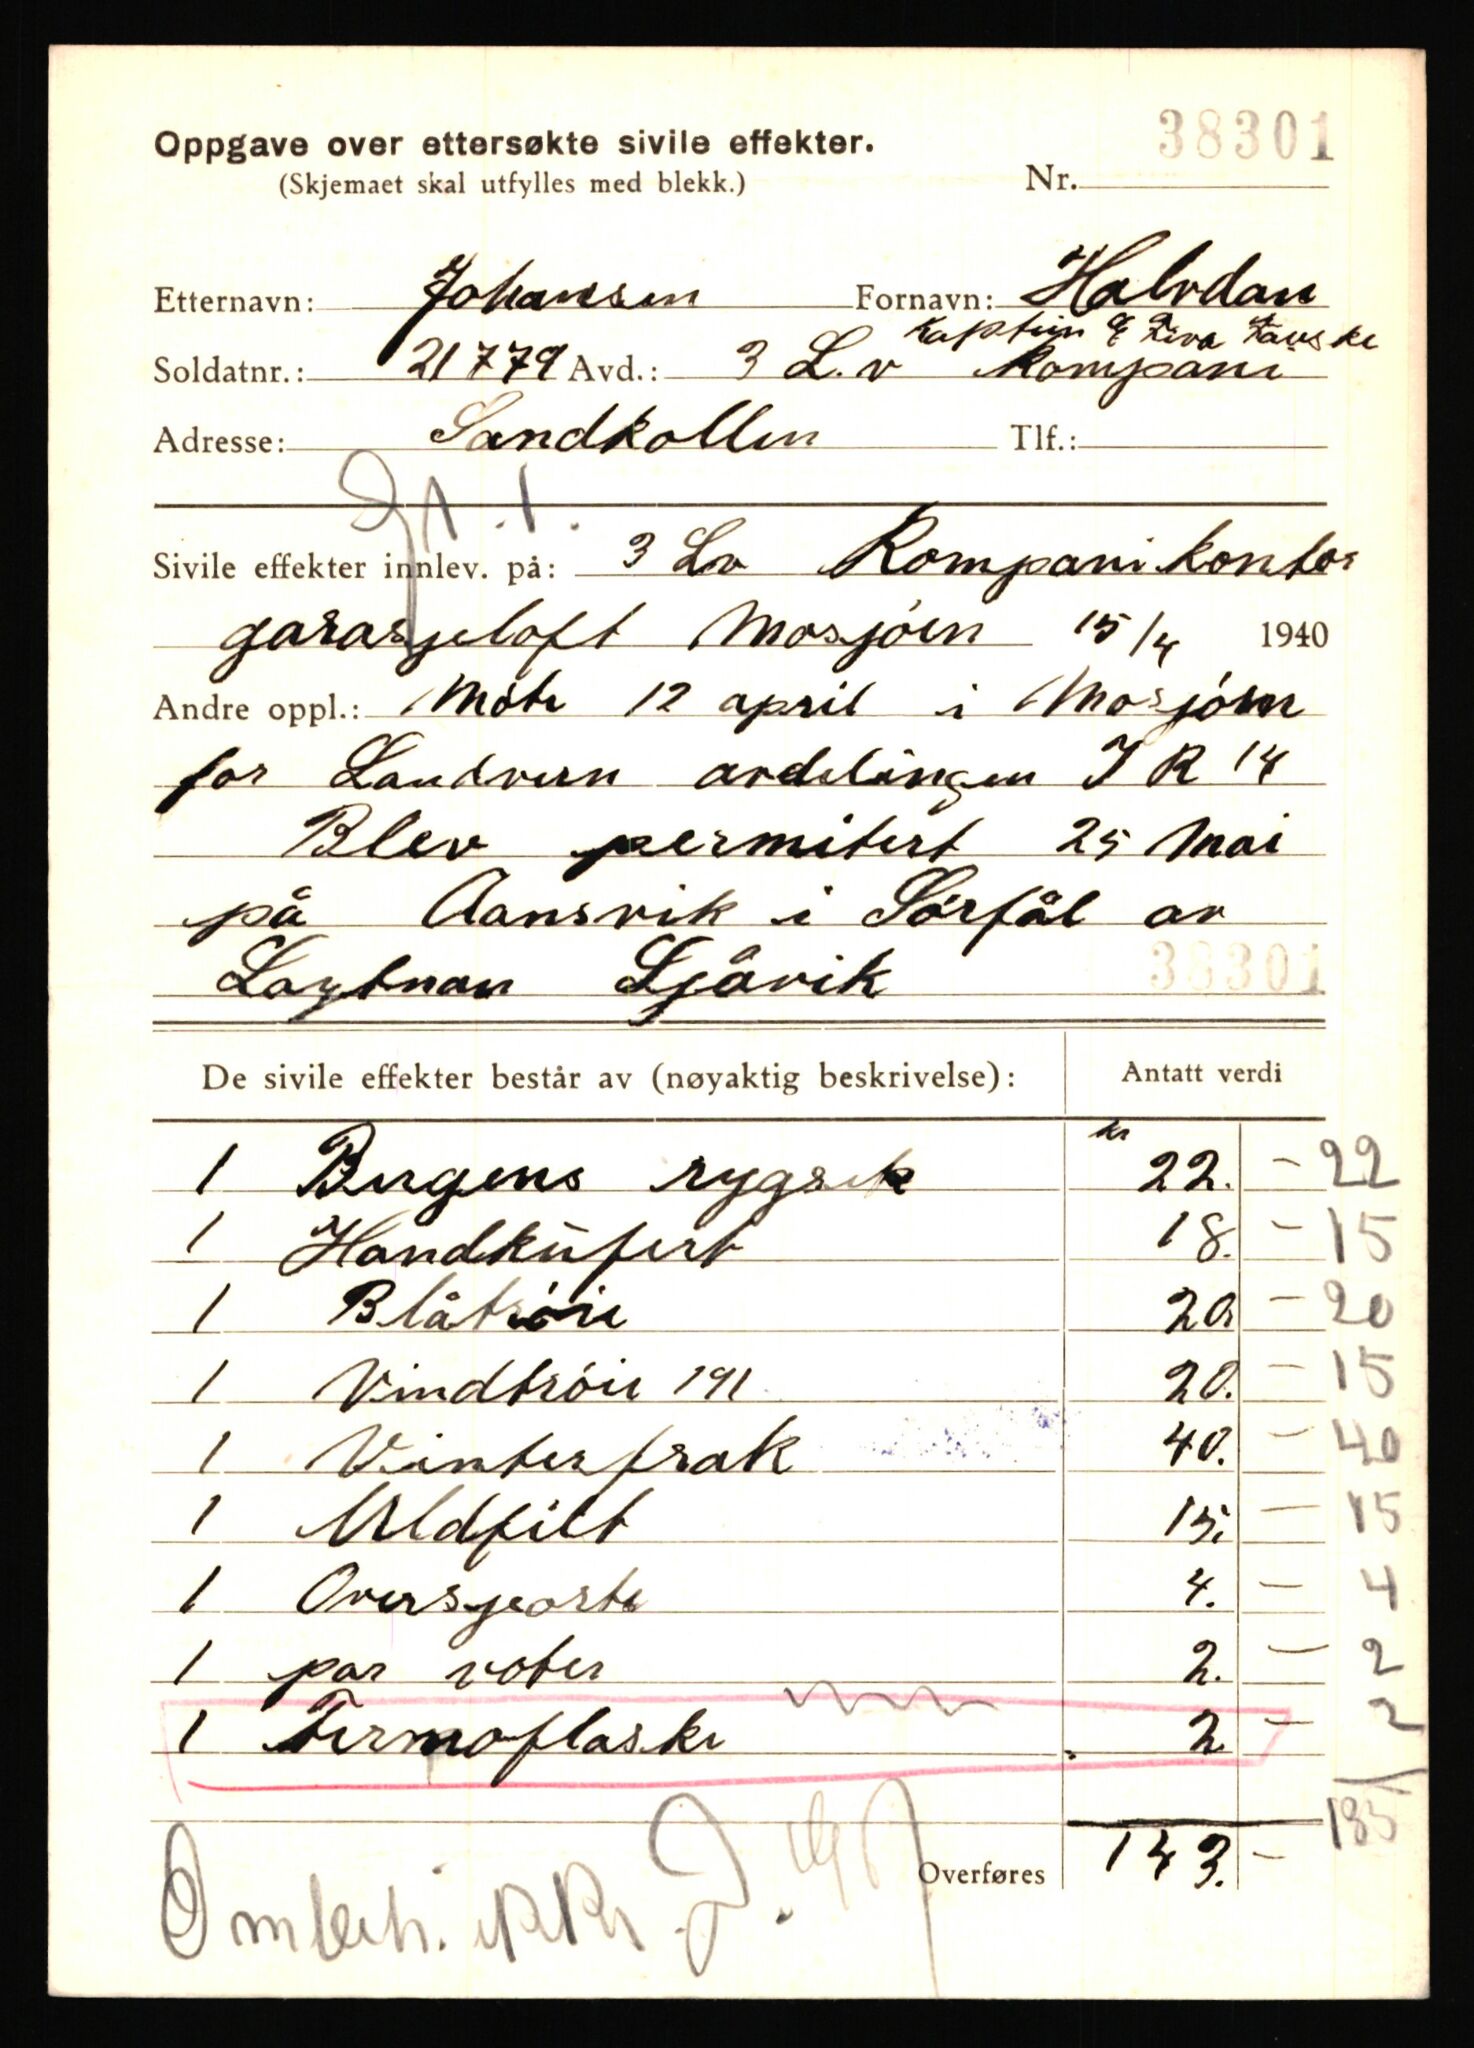 38301
Oppgave over ettersøkte sivile effekter.
(Skjemaet skal utfylles med blekk.)
Nr.
Etternavn: Johansen Fornavn: Halvdan
Kaptein
Soldatnr.: 21779 Avd.: 3 L.v Kompani
Adresse: Sandkollen Tlf.:
Sivile effekter innlev. på: 3 Lv Kompanikontor
garasjeloft Mosjöen 15/4 1940
Andre oppl.: Möte 12 april i Mosjöen
for Landvern avdelingen I R 14
Blev permitert 25 Mai
på Aansvik i Sörfål av
Løytnan Ljåvik
38301
De sivile effekter består av (nøyaktig beskrivelse): Antatt verdi
1 Bergens rygsek kr 22. - 22
1 Handkufert 18. - 15
1 Blåtröie 20 - 20
1 Vindtröie 191 20. - 15
1 Vinterfrak 40. - 40
1 Uldfilt 15. - 15
1 Overskjorte 4. - 4
1 par voter 2. - 2
1 Termoflaske 2 - 2
135
Overføres 143. -